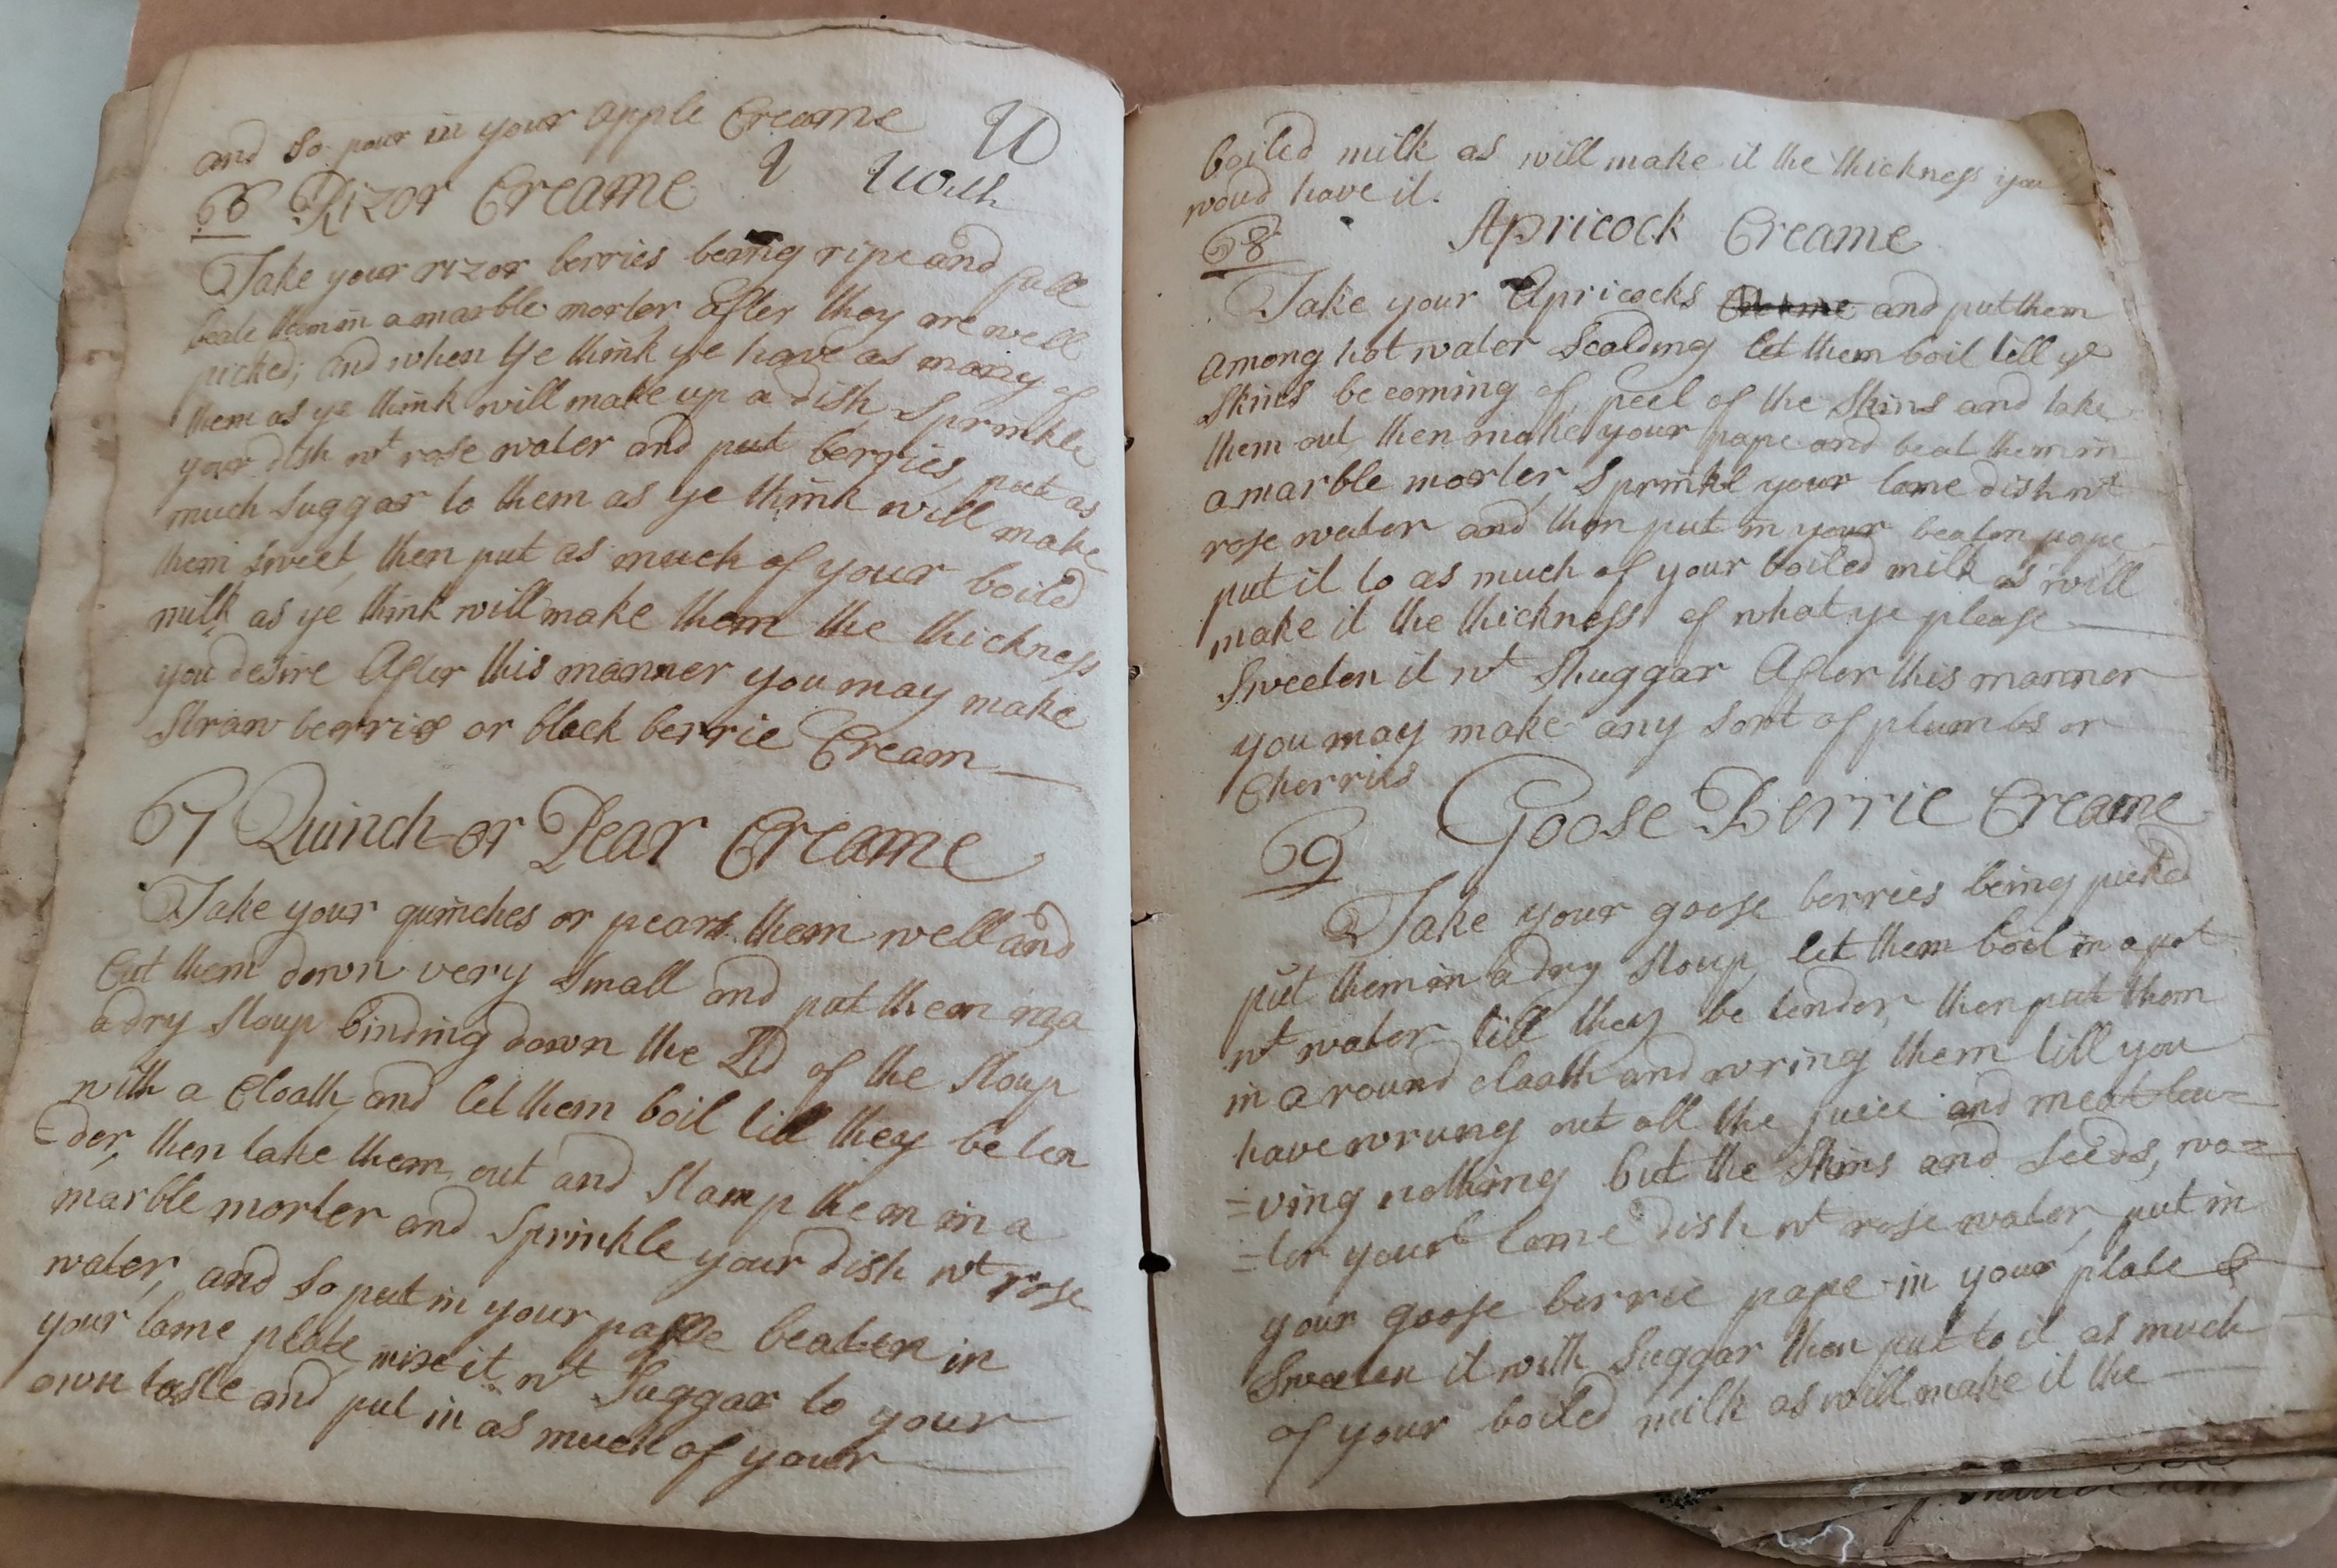 and So pour in your apple Creame
66 Rizor Creame
Take your rizor berries being ripe and full
beate them in a marble morter after they are well
picked; and when ye think ye have as many of
them as ye think will make up a dish Sprinkle
your dish wt rose water and put berries, put as
much Suggar to them as ye think will make
them sweet, then put as much of your boiled
milk as ye think will make them the thickness
you desire After this manner you may make
Straw berries or black berrie Cream
67 Quinch or Pear Creame
Take your quinches or pears them well and
Cut them down very Small and put them in a
a dry Stoup binding down the Lid of the Stoup
with a Cloath and let them boil till they be ten
=der, then take them out and Stamp them in a
marble morter and Sprinkle your dish wt rose
water, and So put in your pape beaten in
your lame plate, mixe it wt Suggar to your
own taste and put in as much of your
boiled milk as will make it the thickness you
woud have it.
68 Apricock Creame
Take your Apricocks and put them
among hot water Scalding let them boil till ye
Skins be coming of, peel of the Skins and take
them out, then make your pape and beat them in
a marble morter, Sprinkl your lame dish wt
rose water and then put in your beaten pape
put it to as much of your boiled milk as will
make it the thickness of what ye please
Sweeten it wt Shuggar After this manner
you may make any Sort of plumbs or
Cherries
69 Goose Berrie Creame
Take your goose berries being picked
put them in a dry Stoup, let them boil in a pot
wt water till they be tender, then put them
in a round cloath and wring them till you
have wrung out all the juice and meat lea=
=ving nothing but the Skins and Seeds, wa=
=ter your lame dish wt rose water, put in
your goose berrie pape in your plate &
Sweeten it with Suggar then put to it as much
of your boiled milk as will make it the